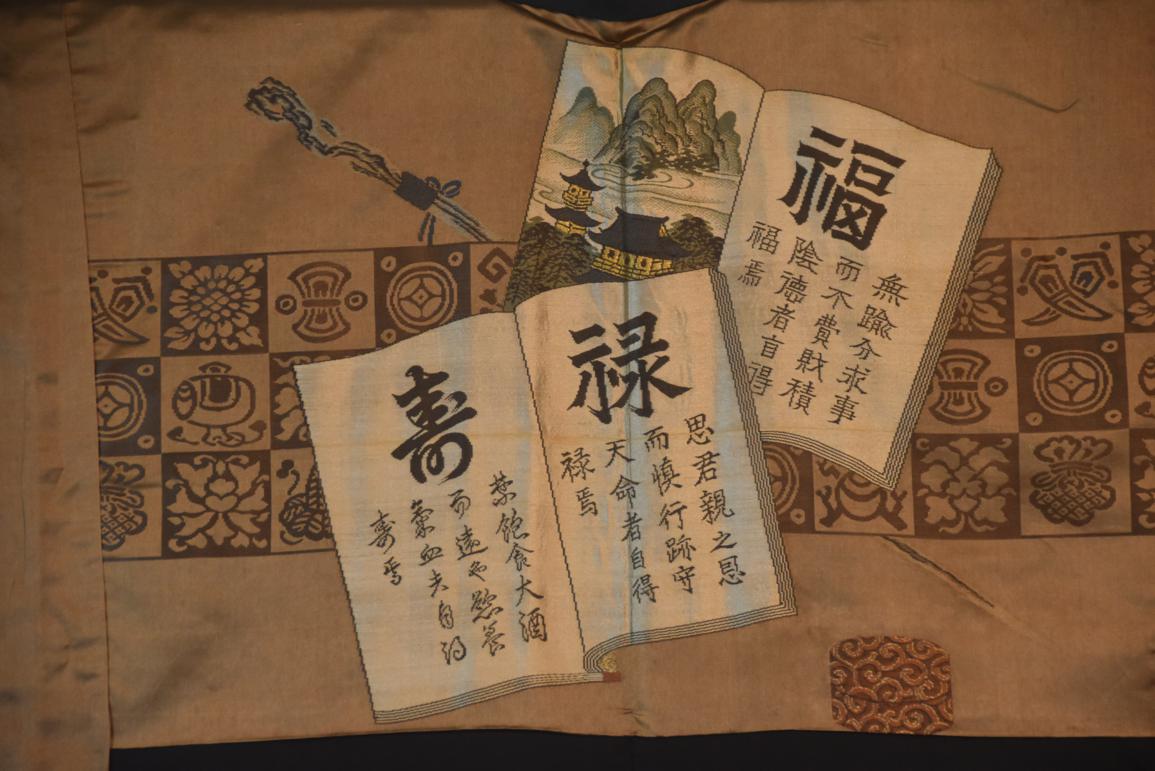 福
無踰分求事
而不費財積
陰徳者自得
福焉
禄
思君親之恩
而慎行跡守
天命者自得
禄焉
寿
禁飽食大酒
而遠色慾養
氣血夫自得
寿焉